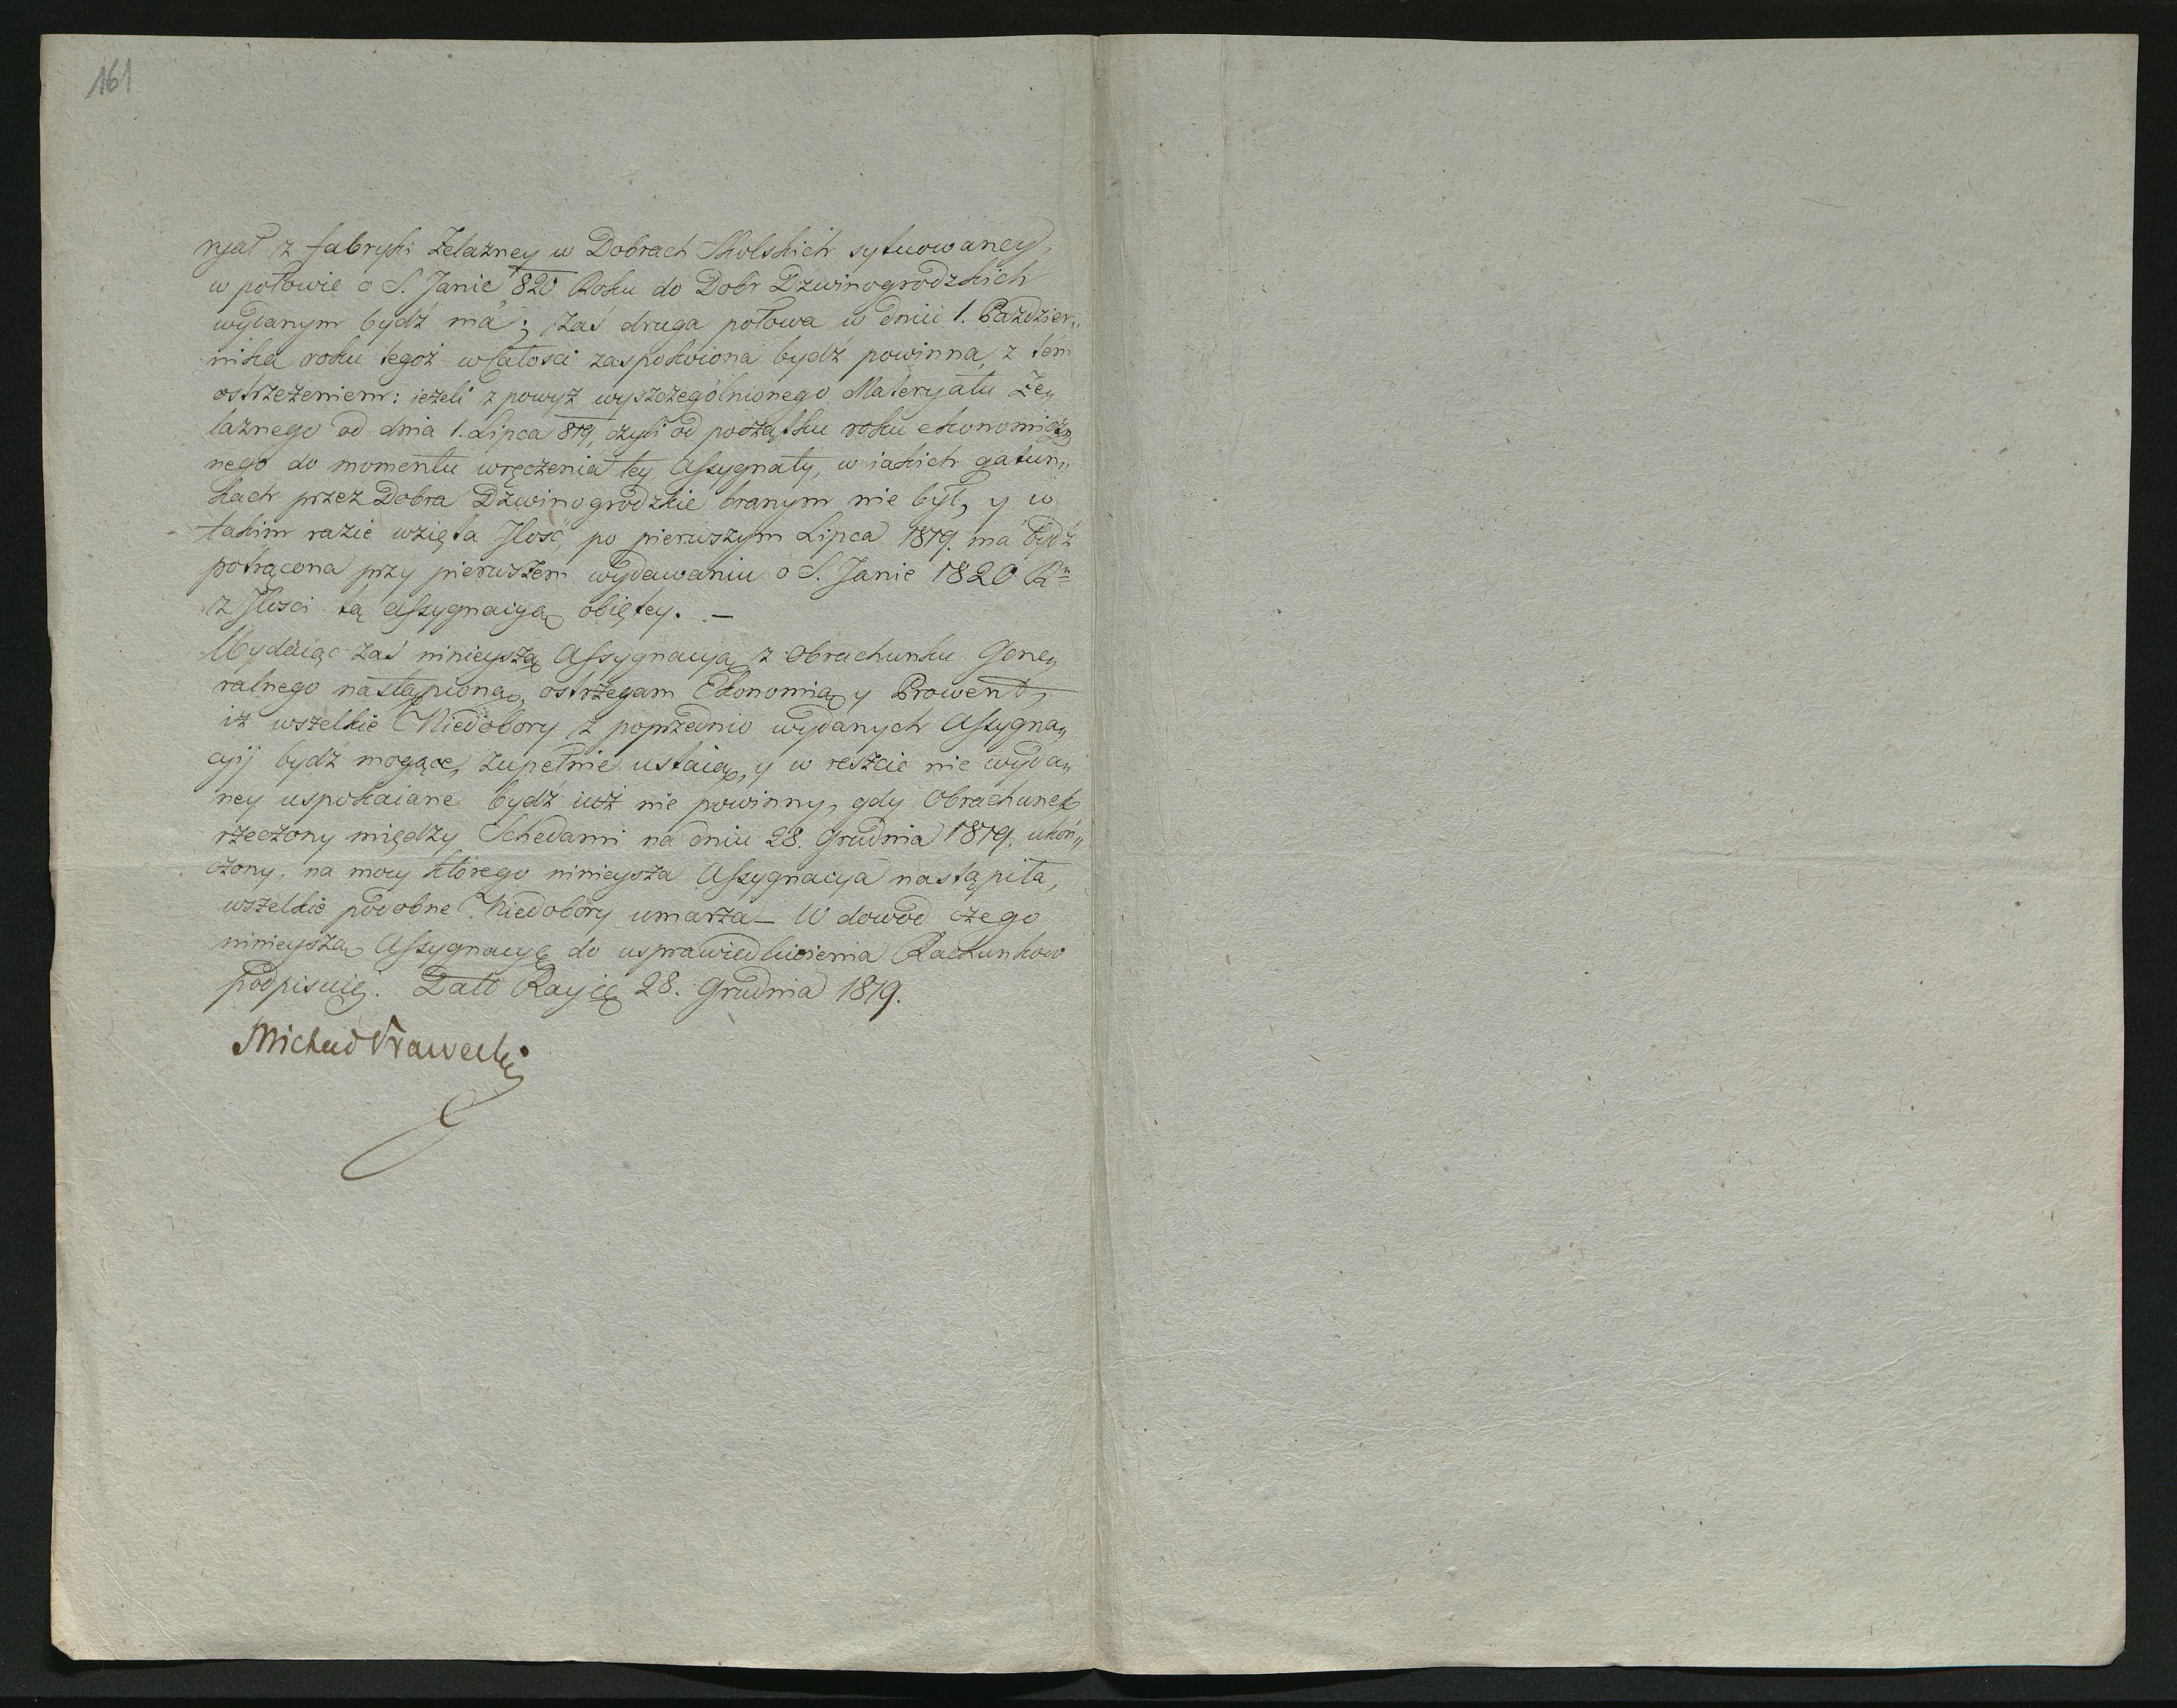 161
ryał z fabryki Żelazney w Dobrach Skolskich sytuowaney,
w połowie o S. Janie 820 Roku do Dobr Dzwinogrodzkich
wydanym bydź ma; zaś druga połowa w dniu 1. Paździer„
nika roku tegoż w całości zaspokoiona bydź powinna, z tem
ostrzeżeniem: ieżeli z powyż wyszczególnionego Materyału Że„
laznego od dnia 1. Lipca 819, czyli od początku roku ekonomicz„
nego do momentu wręczenia tey Assygnaty, w iakich gatun„
kach przez Dobra Dzwinogrodzkie branym nie był, y w
takim razie wzięta Jlość, po pierwszym Lipca 1819. ma bydź
potrącona przy pierwszem wydawaniu o S. Janie 1820 Rn
z Jlości tą assygnacyą obiętey. —
Wydaiąc zaś ninieyszą Assygnacyą z Obrachunku Gene„
ralnego nastąpioną, ostrzegam Ekonomią y Prowent,
iż wszelkie Niedobory z poprzednio wydanych Assygna„
cyi bydź mogące, zupełnie ustaią, y w reszcie nie wyda„
ney uspokaiane bydź iuż nie powinny, gdy Obrachunek
rzeczony między Schedami na dniu 28. Grudnia 1819. ukoń„
czony, na mocy którego ninieysza Assygnacya nastąpiła,
wszelkie podobne Niedobory umarza — W dowód czego
ninieyszą Assygnacyę do usprawiedliwienia Rachunkow
podpisuię. Datt Rayię 28. Grudnia 1819.
Michał